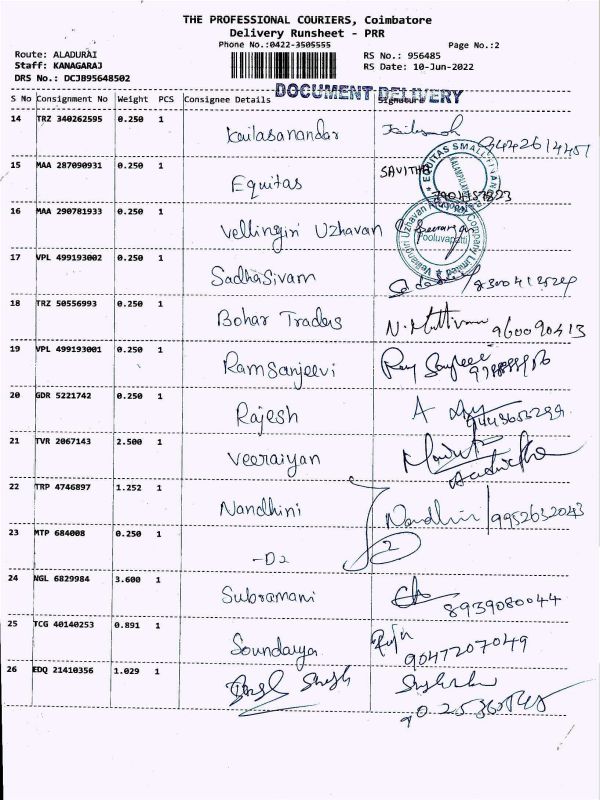 THE PROFESSIONAL COURIERS, Coimbatore
Delivery Runsheet - PRR
Phone No.:0422-3505555
Page No.:2
Route: ALADURAI
Staff: KANAGARAJ
DRS No.: DCJB95648502
RS No.: 956485
RS Date: 10-Jun-2022
DOCUMENT DELIVERY
S No Consignment No Weight PCS Consignee Details Signature
14 TRZ 340262595 0.250 1 Kailasanandar
15 MAA 287090931 0.250 1 Equitas SAVITHA
EQUITAS SMALL FINAN
16 MAA 290781933 0.250 1 Vellingiri Uzhavan
Velliangiri Uzhavan Company Limited Pooluvapatti
17 VPL 499193002 0.250 1 SadhaSivam
18 TRZ 50556993 0.250 1 Bohar Traders 960090413
19 VPL 499193001 0.250 1 Ramsanjeevi
20 GDR 5221742 0.250 1 Rajesh
21 TVR 2067143 2.500 1 Veeraiyan
22 TRP 4746897 1.252 1 Nandhini Nandhini 9952632043
23 MTP 684008 0.250 1 -D2 2
24 NGL 6829984 3.600 1 Subramani 8939080044
25 TCG 40140253 0.891 1 Soundarya 9047207049
26 EDQ 21410356 1.029 1